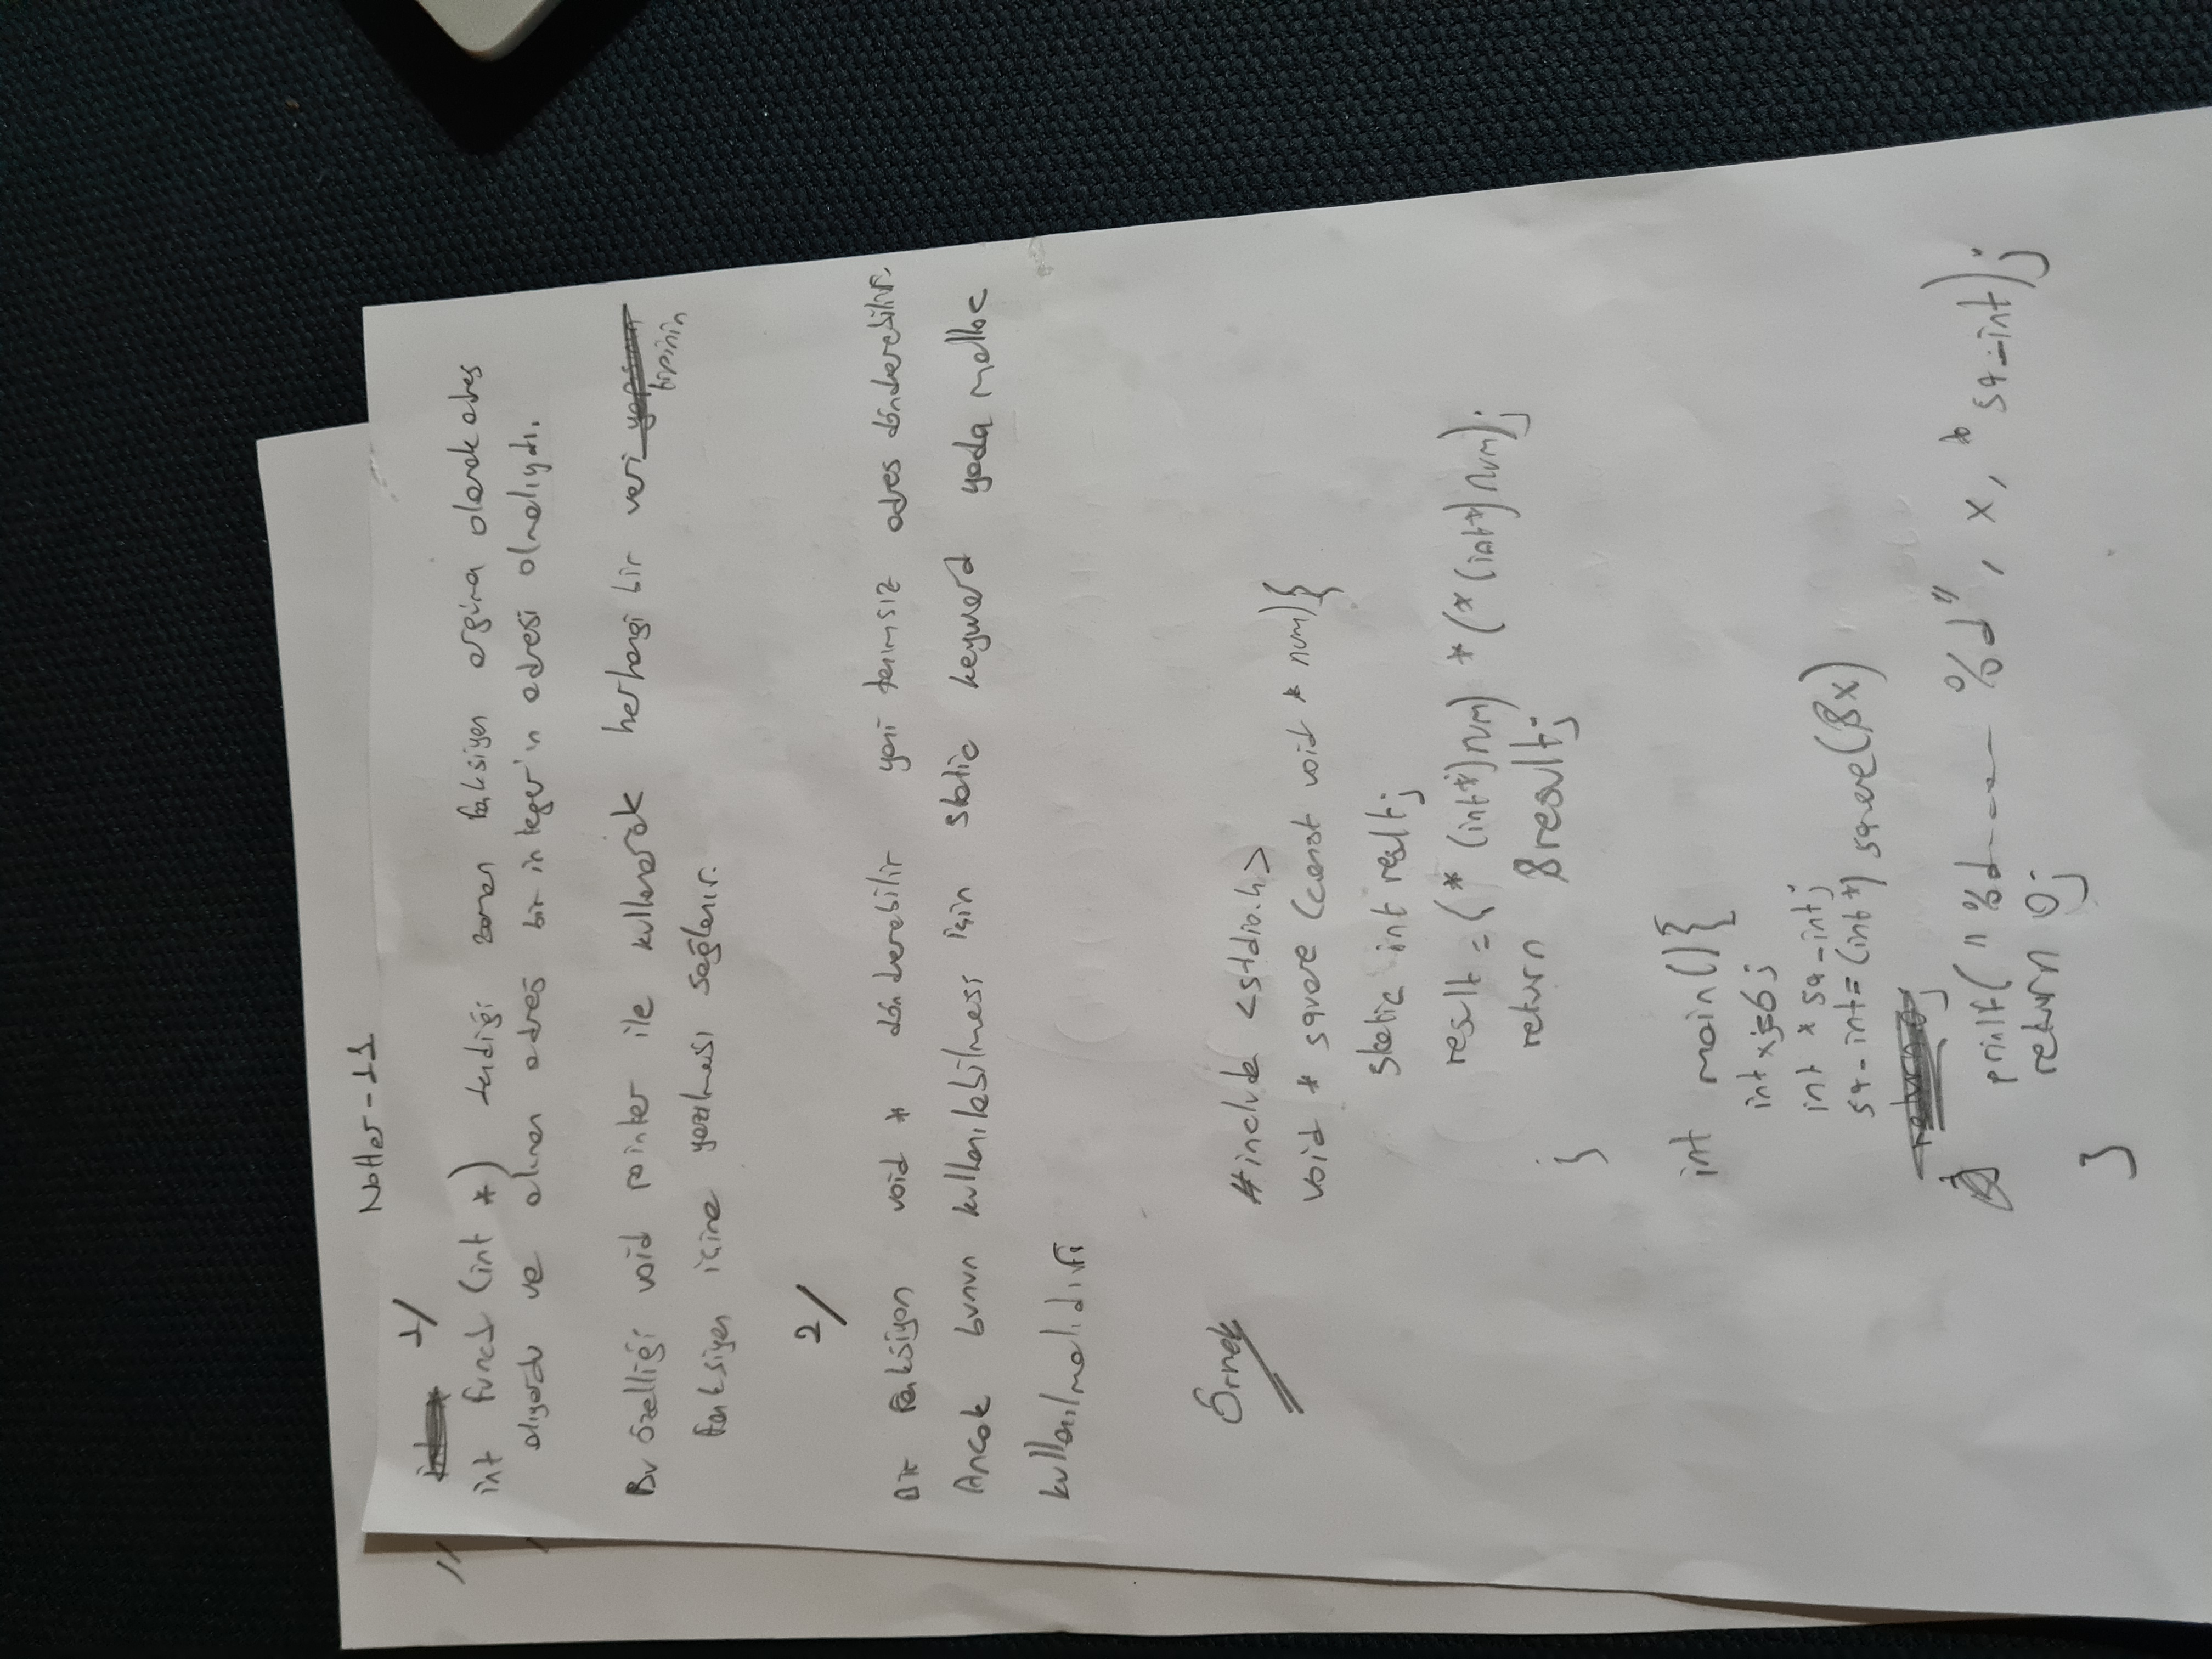 Notlar-11
1/
int func1 (int *) dendiği zaman fonksiyon argüman olarak adres
alıyordu ve alınan adres bir integer'ın adresi olmalıydı.
Bu özelliği void pointer ile kullanarak herhangi bir veri tipinin
fonksiyon içine yazılması sağlanır.
2/
Bir fonksiyon void * dönderebilir yani tanımsız adres dönderebilir.
Ancak bunun kullanılabilmesi için static keyword yada malloc
kullanılmalıdır.
Örnek
#include <stdio.h>
void * square (const void * num){
static int result;
result = (* (int*)num) * (* (int*) num);
return &result;
}
int main(){
int x=6;
int * sq_int;
sq_int = (int *) square(&x)
return 0;
printf("%d---- %d", x, *sq_int);
return 0;
}